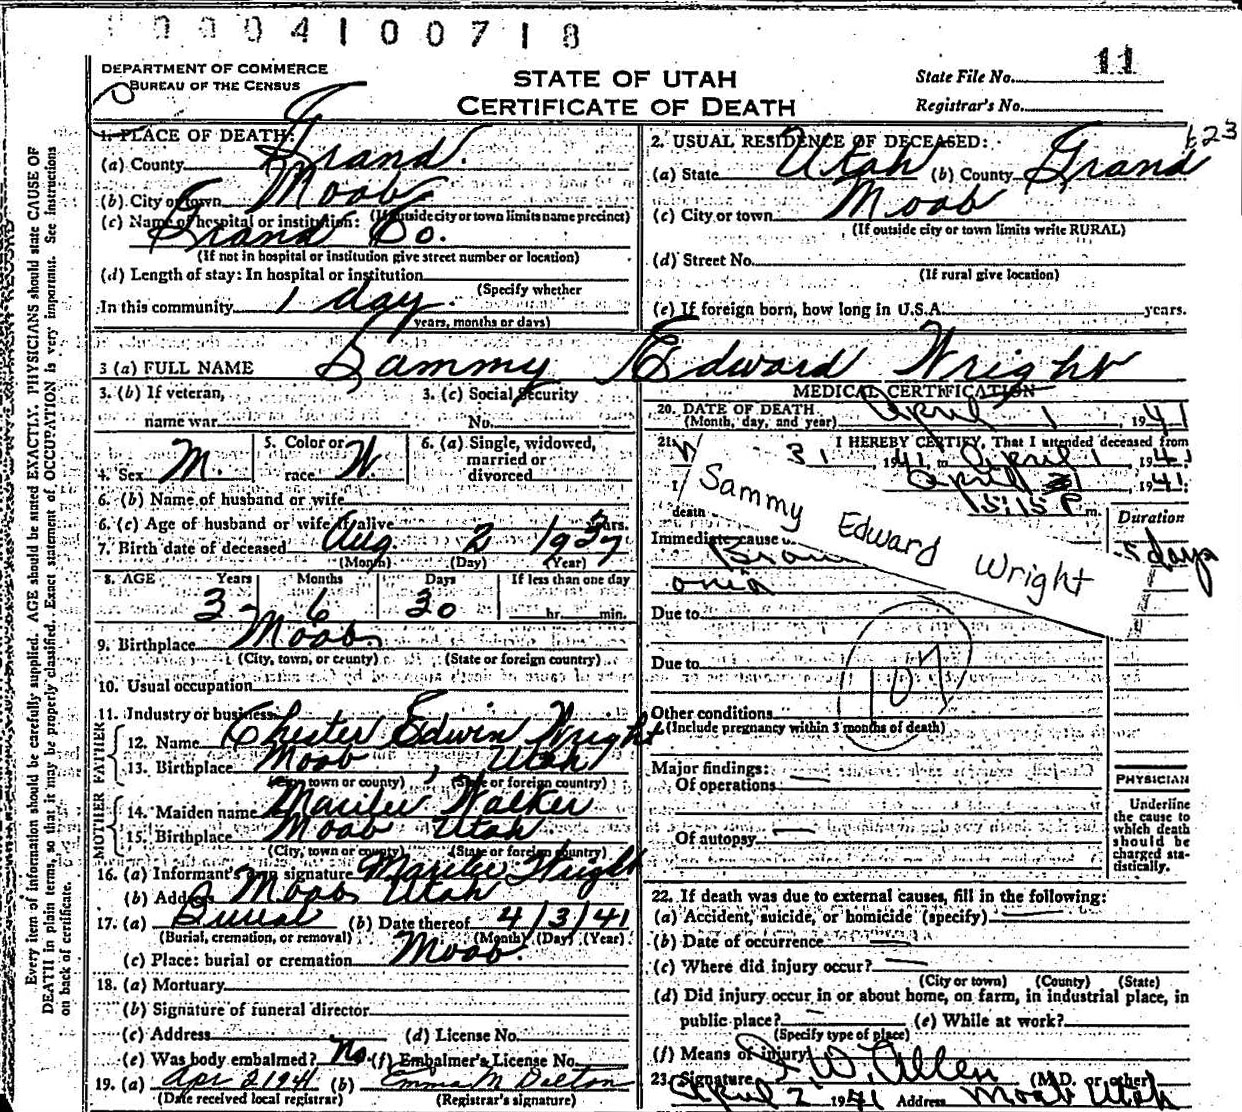 0004100718
11
DEPARTMENT OF COMMERCE
BUREAU OF THE CENSUS
STATE OF UTAH
CERTIFICATE OF DEATH
State File No.
Registrar's No.
623
Every item of information should be carefully supplied. AGE should be stated EXACTLY. PHYSICIANS should state CAUSE OF
DEATH in plain terms, so that it may be properly classified. Exact statement of OCCUPATION is very important. See instructions
on back of certificate.
1. PLACE OF DEATH:
(a) County Grand.
(b) City or town Moab
(If outside city or town limits name precinct)
(c) Name of hospital or institution:
Grand Co.
(If not in hospital or institution give street number or location)
(d) Length of stay: In hospital or institution
(Specify whether
In this community 1 day.
years, months or days)
2. USUAL RESIDENCE OF DECEASED:
(a) State Utah (b) County Grand
(c) City or town Moab
(If outside city or town limits write RURAL)
(d) Street No.
(If rural give location)
(e) If foreign born, how long in U.S.A. years.
3 (a) FULL NAME Sammy Edward Wright
3. (b) If veteran,
name war
3. (c) Social Security
No.
4. Sex M.
5. Color or
race W
6. (a) Single, widowed,
married or
divorced
6. (b) Name of husband or wife
6. (c) Age of husband or wife if alive yrs.
7. Birth date of deceased Aug. 2 1937
(Month) (Day) (Year)
8. AGE Years Months Days If less than one day
3 6 30 hr. min.
9. Birthplace Moab
(City, town, or county) (State or foreign country)
10. Usual occupation
11. Industry or business
FATHER
12. Name Chester Edwin Wright
13. Birthplace Moab, Utah
(City, town or county) (State or foreign country)
MOTHER
14. Maiden name Marilee Walker
15. Birthplace Moab Utah
(City, town or county) (State or foreign country)
16. (a) Informant's own signature Marilee Wright
(b) Address Moab Utah
17. (a) Burial (b) Date thereof 4/3/41
(Burial, cremation, or removal) (Month) (Day) (Year)
(c) Place: burial or cremation Moab.
18. (a) Mortuary
(b) Signature of funeral director
(c) Address (d) License No.
(e) Was body embalmed? No. (f) Embalmer's License No.
19. (a) Apr 2 1941 (b) Emma M Dalton
(Date received local registrar) (Registrar's signature)
MEDICAL CERTIFICATION
20. DATE OF DEATH April 1, 1941
(Month, day, and year)
21. I HEREBY CERTIFY, That I attended deceased from
31, 1941, to April 1, 1941
I April 1, 1941.
death m.
Sammy Edward Wright
Duration
Immediate cause
5 days
Due to
Due to
107
Other conditions
(Include pregnancy within 3 months of death)
Major findings:
Of operations
Of autopsy
PHYSICIAN
Underline
the cause to
which death
should be
charged sta-
tistically.
22. If death was due to external causes, fill in the following:
(a) Accident, suicide, or homicide (specify)
(b) Date of occurrence
(c) Where did injury occur?
(City or town) (County) (State)
(d) Did injury occur in or about home, on farm, in industrial place, in
public place? (e) While at work?
(Specify type of place)
(f) Means of injury
23. Signature W. Allen (M.D. or other)
April 2 1941 Address Moab Utah